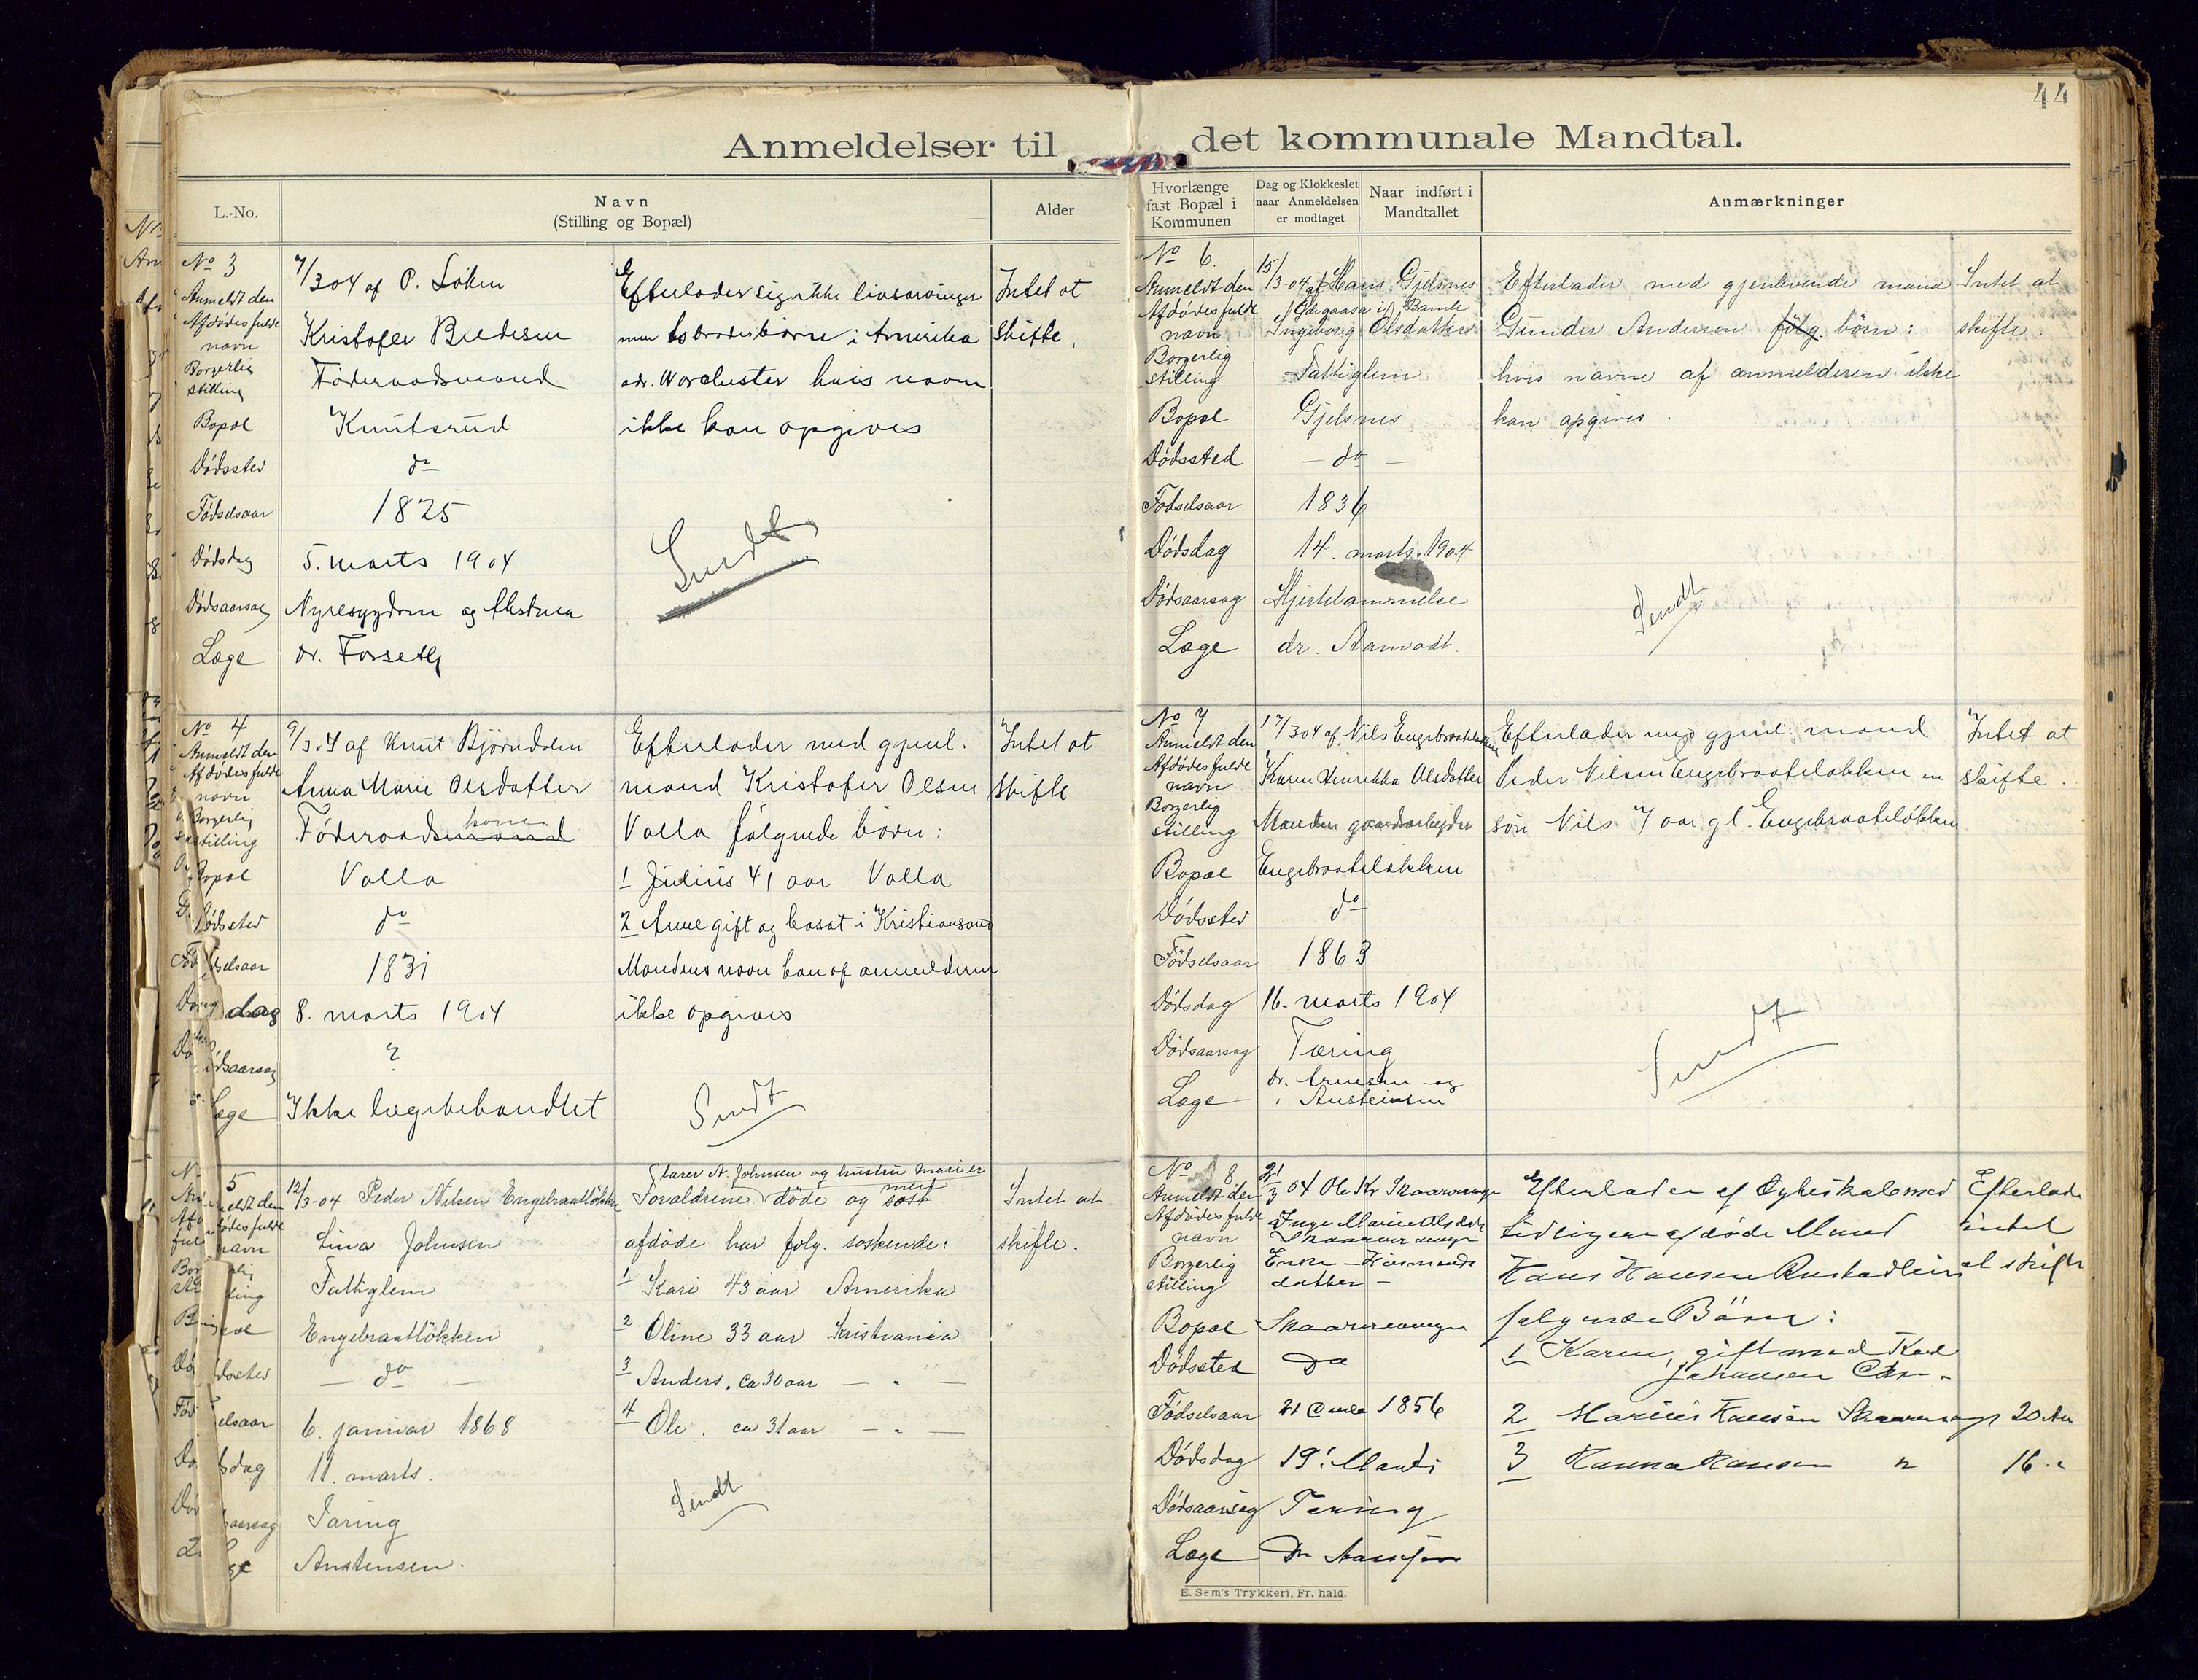 44
Anmeldelser til det kommunale Mandtal.
L.-No.
Navn
(Stilling og Bopæl)
Alder
Hvorlænge
fast Bopæl i
Kommunen
Dag og Klokkeslet
naar Anmeldelsen
er modtaget
Naar indført i
Mandtallet
Anmærkninger
No 3
Anmeldt den 7/3 04 af P. Löken
Afdødes fulde navn Kristofer Bredesen
Borgerlig stilling Föderaadsmand
Bopæl Knutsrud
Dödssted do
Födselsaar 1825
Dödsdag 5. marts 1904
Dödsaarsag Nyresygdom og Astma
Læge dr. Forseth
Efterlader sig ikke livsarvinger
men to broderbörn i Amerika
adr. Worchester hvis navn
ikke kan opgives
Sendt
Intet at
skifte.
No 4
Anmeldt den 9/3 04 af Knut Björndalen
Afdødes fulde navn Anna Marie Olsdatter
Borgerlig stilling Föderaadsmand kone
Bopæl Valla
Dödssted do
Födselsaar 1831
Dödsdag 8. marts 1904
Dödsaarsag ?
Læge Ikke lægebehandlet
Efterlader med gjenl.
mand Kristofer Olsen
Valla fölgende börn:
1 Julius 41 aar Valla
2 Anne gift og bosat i Kristiansand
Mandens navn kan af anmelderen
ikke opgives
Sendt
Intet at
skifte
No 5
Anmeldt den 12/3-04 Peder Nilsen Engebraatlökken
Afdødes fulde navn Lina Johnsen
Borgerlig stilling Fattiglem
Bopæl Engebraatlökken
Dödssted — do —
Födselsaar 6. januar 1868
Dödsdag 11. marts.
Dödsaarsag Tæring
Læge Anstensen.
Larer A. Johnsen og hustru Mari er
Foraldrene döde og med
afdöde har fölg. söskende:
1 Kari 43 aar Amerika
2 Oline 33 aar Kristiania
3 Anders. ca 30 aar — " —
4 Ole. ca 31 aar — " —
Sendt
Intet at
skifte.
No 6.
Anmeldt den 15/3-04 af Hans Gjelsnes
Afdødes fulde i Bamle
navn Ingeborg Olsdatter
Borgerlig stilling Fattiglem
Bopæl Gjelsnes
Dödssted — do —
Födselsaar 1836
Dödsdag 14. marts. 1904
Dödsaarsag Hjertelammelse
Læge dr. Aamodt.
Efterlader med gjenlevende mand
Gunder Andersen fölg. börn:
hvis navne af anmelderen ikke
kan opgives.
Sendt
Intet at
skifte.
No 7
Anmeldt den 17/3 04 af Nils Engebraatelökken
Afdødes fulde navn Karen Henrikka Olsdatter
Borgerlig stilling Manden gaardsarbejder
Bopæl Engebraatelökken
Dödssted do
Födselsaar 1863
Dödsdag 16. marts 1904
Dödsaarsag Tæring
Læge dr. Arnesen og
Anstensen
Efterlader med gjenl. mand
Peder Nilsen Engebraatelökken en
sön Nils 7 aar gl. Engebraatelökken
Sendt
Intet at
skifte.
No 8
Anmeldt den 21/3 04 Ole Kr
Afdødes fulde navn Inge Marie Olsdtr
Borgerlig stilling Enke — Husmands
datter —
Bopæl
Dödssted Do
Födselsaar 1856
Dödsdag 19: Marts
Dödsaarsag Tæring
Læge Dr
Efterlader af Ægteskab med
tidligere afdöde Mand
Hans Hansen
følgende Börn:
1 Karen, gift med Karl
Johansen
2 Marius Hansen 20 Aar
3 Hanna Hansen " 16 "
Efterlader
intet
at skifte
E. Sem's Trykkeri, Fr. hald.